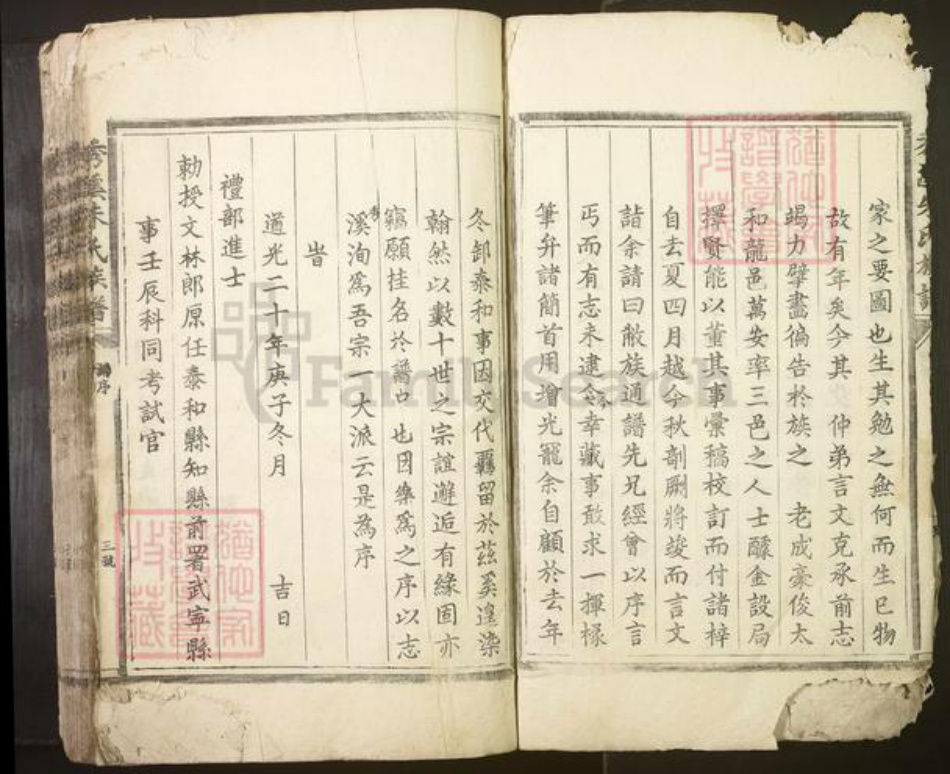 家之要圖也生其勉之無何而生已物
故有年矣今其 仲弟言文克承前志
竭力擘畫徧告於族之 老成豪俊太
和龍邑萬安率三邑之人士醵金設局
擇賢能以董其事彙稿校訂而付諸梓
自去夏四月越今秋剞劂將竣而言文
詣余請曰敝族通譜先兄經曾以序言
丐而有志未逮今幸蕆事敢求一揮椽
筆弁諸簡首用增光寵余自顧於去年
冬卸泰和事因交代羈留於茲奚遑染
翰然以數十世之宗誼邂逅有緣固亦
竊願挂名於譜中也因樂為之序以志
溪洵為吾宗一大派云是為序
旹
道光二十年庚子冬月 吉日
禮部進士
勅授文林郎原任泰和縣知縣前署武寧縣
事壬辰科同考試官
朱氏族譜
譜序
三號
FamilySearch